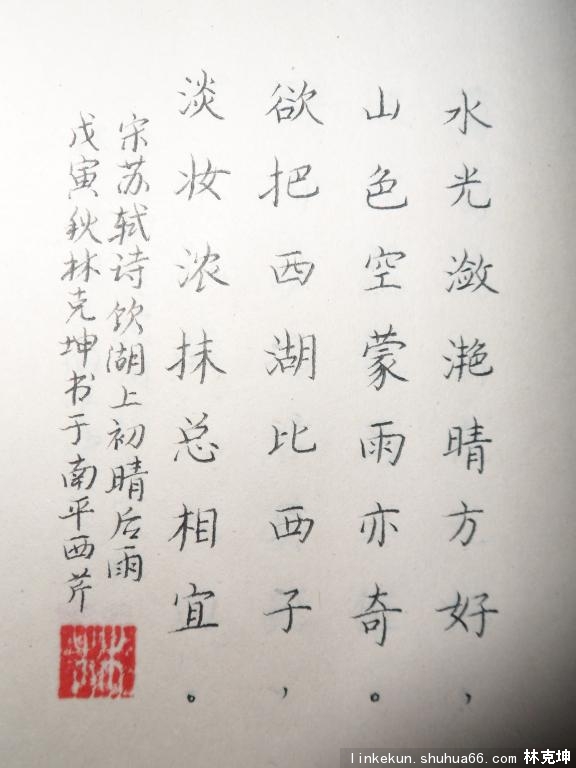 水光潋滟晴方好，
山色空蒙雨亦奇。
欲把西湖比西子，
淡妆浓抹总相宜。
宋苏轼诗饮湖上初晴后雨
戊寅秋林克坤书于南平西芹
linkekun.shuhua66.com 林克坤